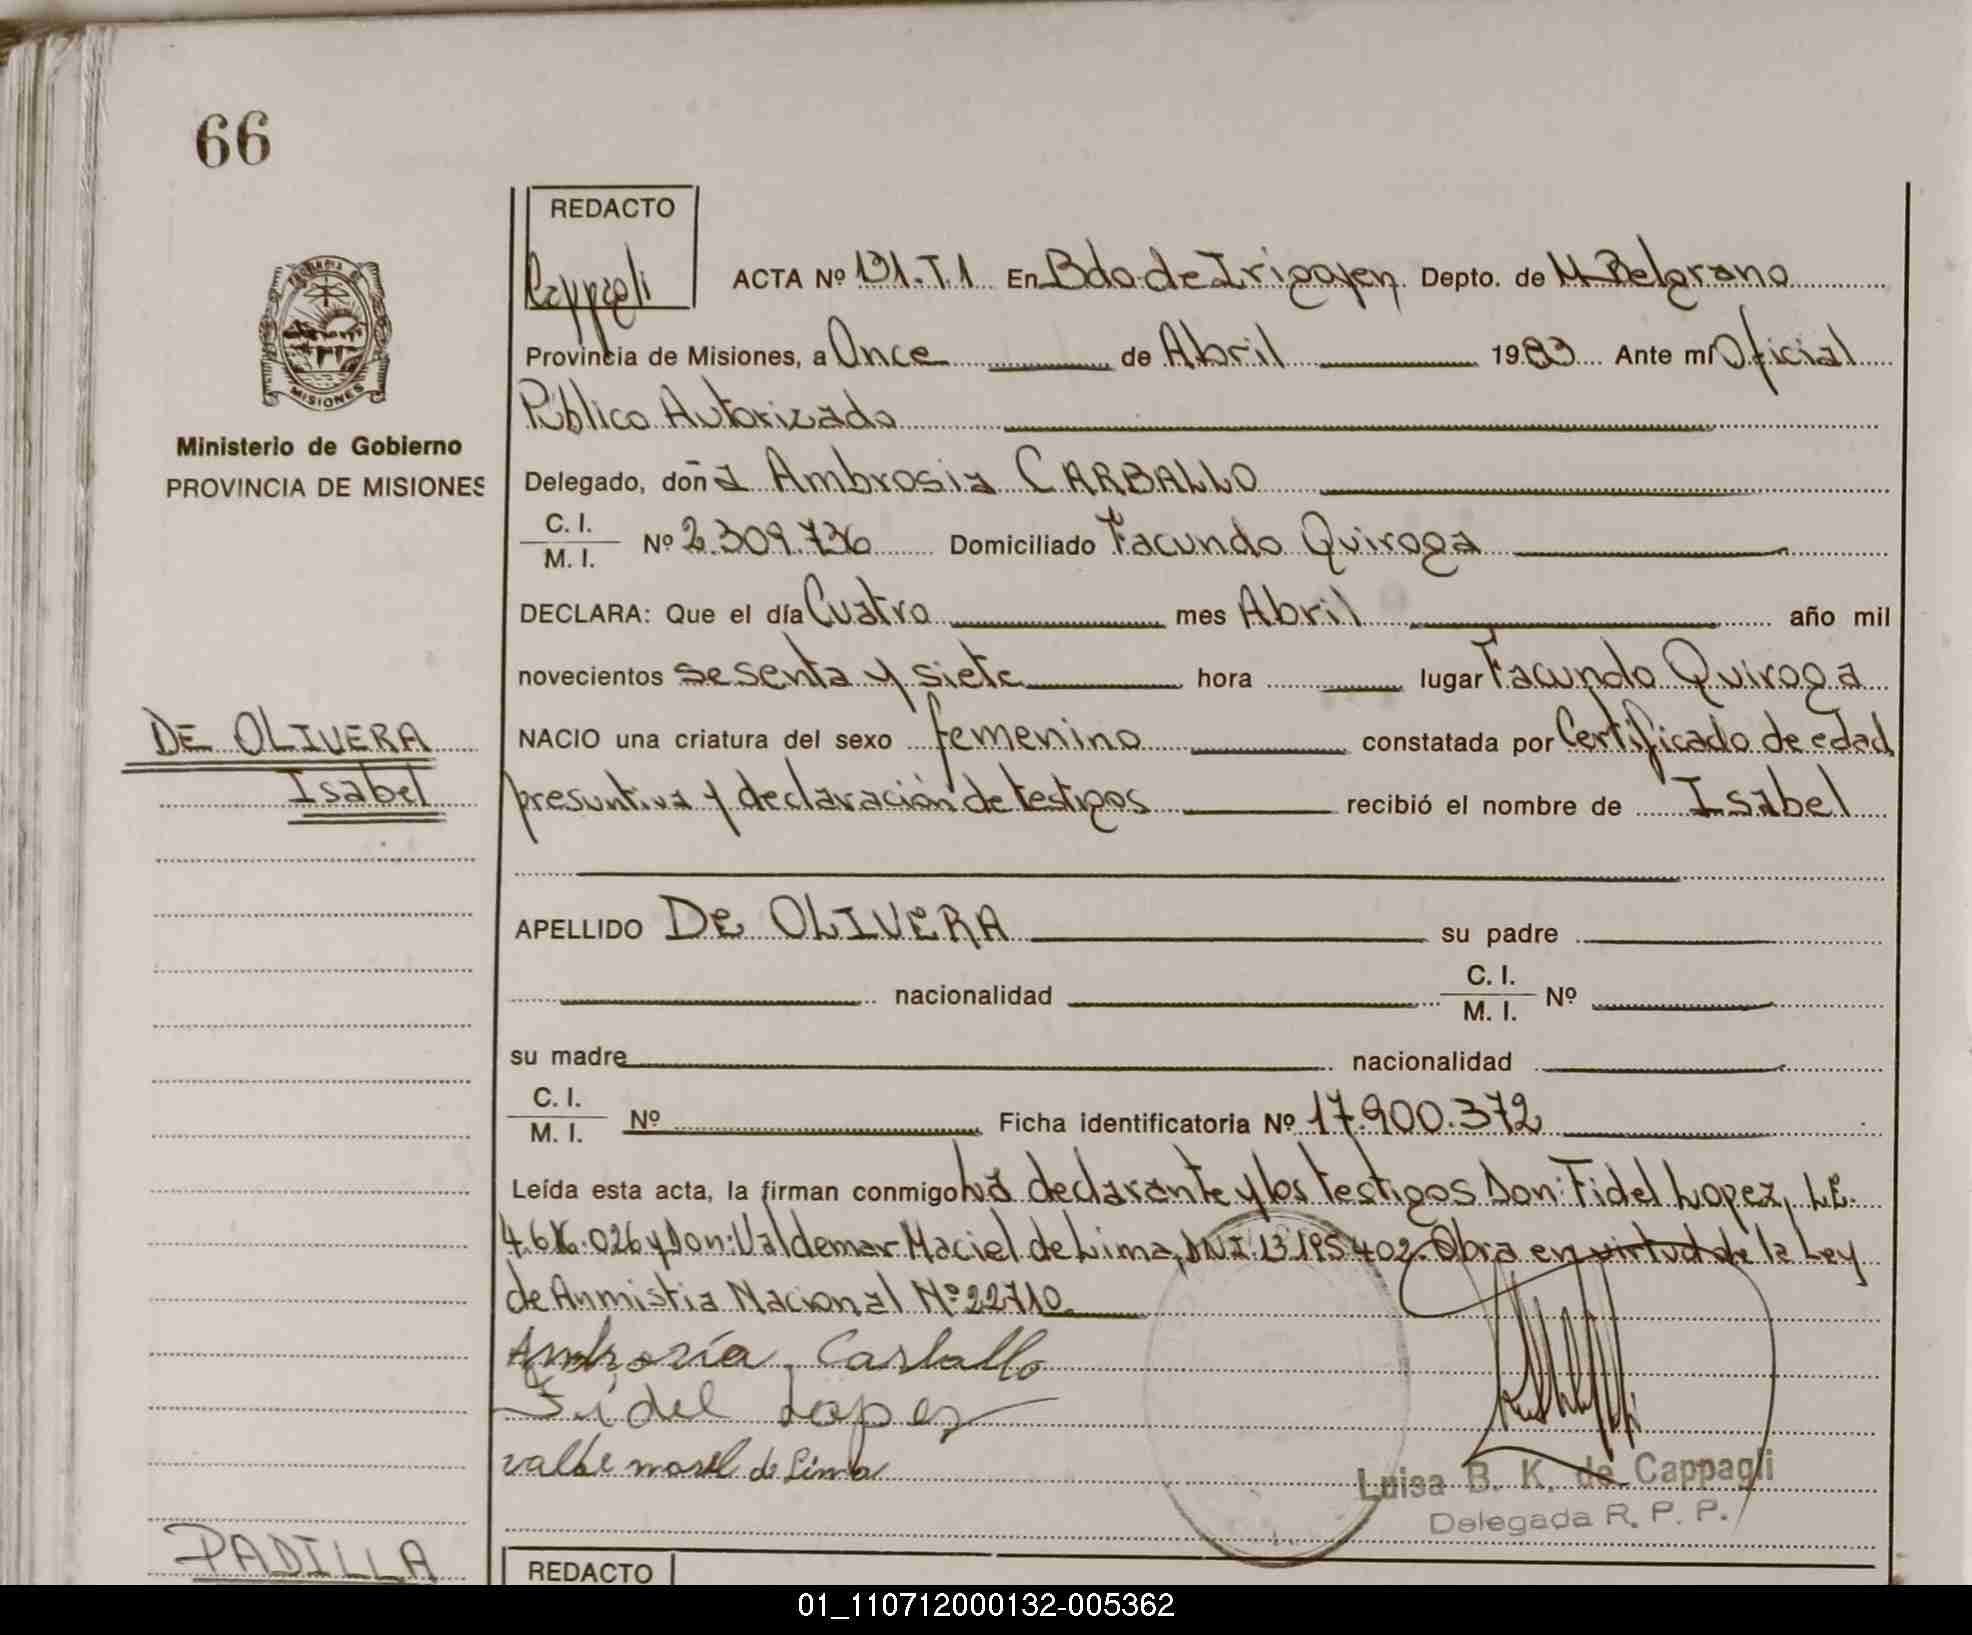 66
REDACTO
Cappagli
ACTA Nº 131.T.1 En Bdo de Irigoyen Depto. de M. Belgrano
Provincia de Misiones, a Once de Abril 1983 Ante mí Oficial
Público Autorizado
MISIONES
Ministerio de Gobierno
PROVINCIA DE MISIONES
Delegado, doña Ambrosia CARBALLO
C. I.
M. I. Nº 2.309.736 Domiciliado Facundo Quiroga
DECLARA: Que el día Cuatro mes Abril año mil
novecientos sesenta y siete hora lugar Facundo Quiroga
DE OLIVERA
Isabel
NACIO una criatura del sexo femenino constatada por Certificado de edad
presuntiva y declaración de testigos recibió el nombre de Isabel
APELLIDO DE OLIVERA su padre
nacionalidad C. I.
M. I. Nº
su madre nacionalidad
C. I.
M. I. Nº Ficha identificatoria Nº 17.900.372
Leída esta acta, la firman conmigo La declarante y los testigos Don: Fidel Lopez, L.E.
026 y Don: Valdemar Maciel de Lima, DNI. 13.195.402. Obra en virtud de la Ley
de Anmistia Nacional Nº 22710.
Ambrosía Carballo
Fidel Lopez
de Lima
Luisa B. K. de Cappagli
Delegada R. P. P.
PADILLA
REDACTO
01_110712000132-005362